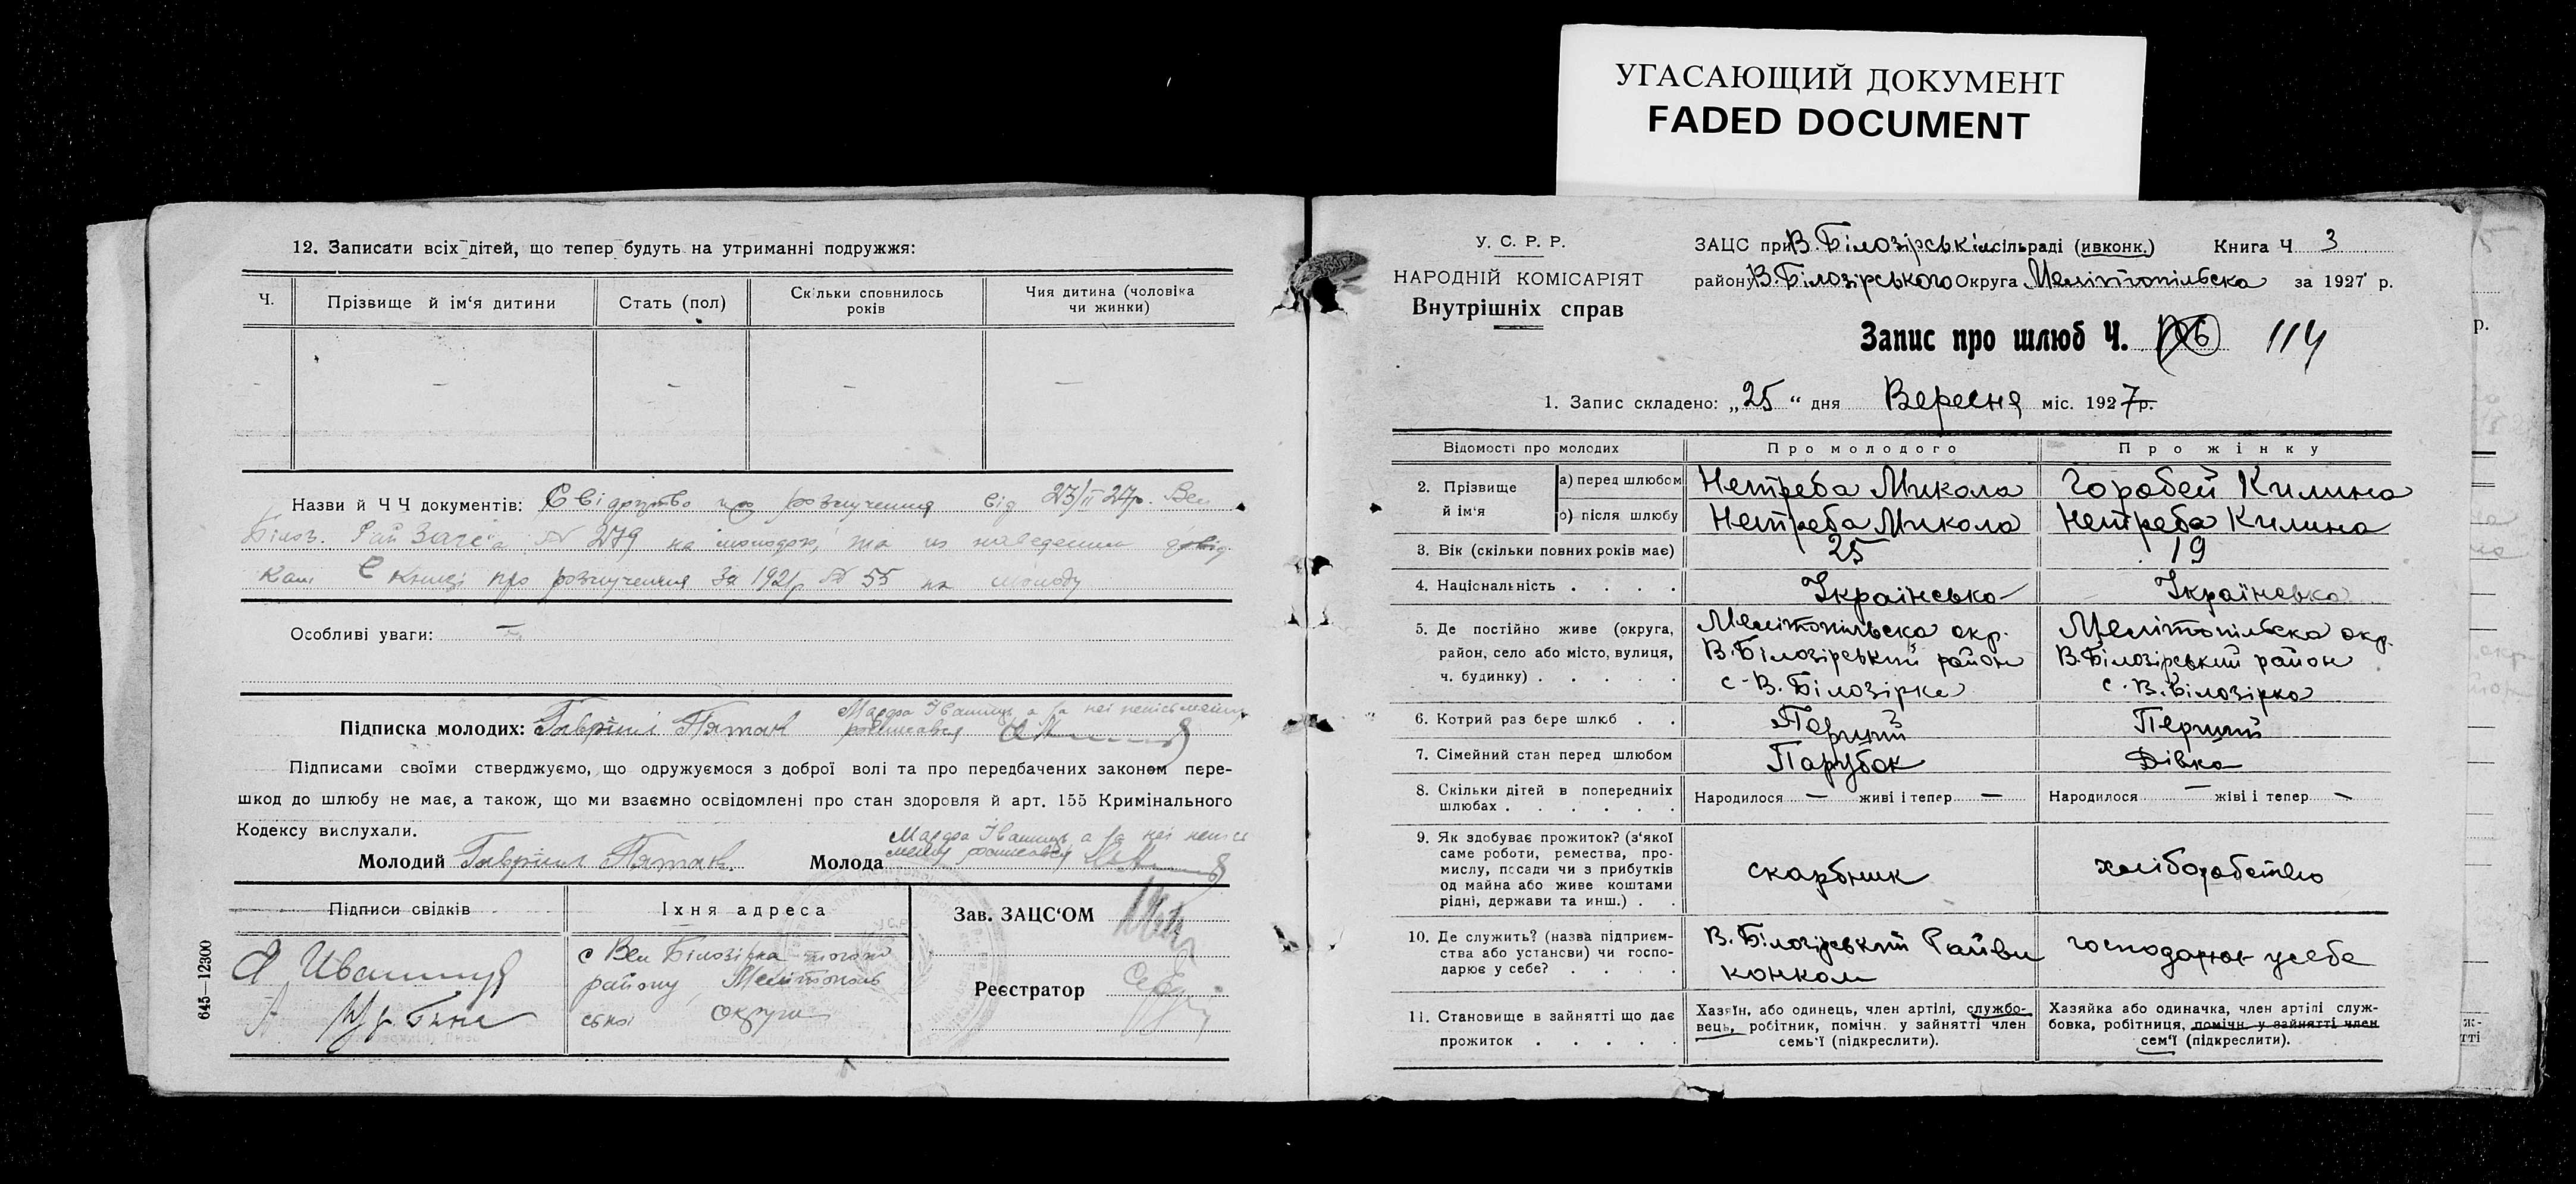 УГАСАЮЩИЙ ДОКУМЕНТ
FADED DOCUMENT
12. Записати всіх дітей, що тепер будуть на утриманні подружжя:
Ч.
Прізвище й ім'я дитини
Стать (пол)
Скільки сповнилось років
Чия дитина (чоловіка чи жинки)
Назви й Ч Ч документів: Свідоцтво про розлучення від 23/II 27р. Вел
Білоз. Рай Загс'а № 279 на молодого, та
Книзі про розлучення за 192 р № 55 на молоду
Особливі уваги: —
Підписка молодих: Гавріил Пятак
Підписами своїми стверджуємо, що одружуємося з доброї волі та про передбачених законом пере-
шкод до шлюбу не має, а також, що ми взаємно освідомлені про стан здоровля й арт. 155 Кримінального
Кодексу вислухали.
Молодий Гавріил Пятак. Молода
Підписи свідків
Іхня адреса
Зав. ЗАЦС'ОМ
с Вел Білозірка того ж
району, Мелітополь
ської округи
Реєстратор
645—12300
У. С. Р. Р.
НАРОДНІЙ КОМІСАРІЯТ
Внутрішніх справ
ЗАЦС при В. Білозірськім сільраді (ивконк.) Книга Ч 3
району В. Білозірського Округа Мелітопільска за 1927 р.
Запис про шлюб Ч. 106 114
1. Запис складено: „25" дня Вересня міс. 1927 р.
Відомості про молодих
Про молодого
Про жінку
2. Прізвище й ім'я
а) перед шлюбом
Нетреба Микола
Горобей Килина
о) після шлюбу
Нетреба Микола
Нетреба Килина
3. Вік (скільки повних років має)
25
19
4. Національність . . . .
Українсько
Українсько
5. Де постійно живе (округа,
район, село або місто, вулиця,
ч. будинку) . . . . .
Мелітопільска окр.
В. Білозірський район
с. В. Білозірка
Мелітопільска окр.
В. Білозірський район
с. В. Білозірка
6. Котрий раз бере шлюб . .
Перший
Перший
7. Сімейний стан перед шлюбом
Парубок
Дівка
8. Скільки дітей в попередниіх
шлюбах . . . . . .
Народилося — живі і тепер —
Народилося — жіві і тепер —
9. Як здобуває прожиток? (з'якої
саме роботи, ремества, про-
мислу, посади чи з прибутків
од майна або живе коштами
рідні, держави та инш.) . .
скарбник
хліборобство
10. Де служить? (назва підприєм-
ства або установи) чи госпо-
дарює у себе? . . . .
В. Білозірський Райви
конком
господарює усебе
11. Становище в зайнятті що дає
прожиток . . . . .
Хазяїн, або одинець, член артілі, службо-
вець, робітник, помічн. у зайнятті член
семь'ї (підкреслити).
Хазяйка або одиначка, член артілі служ-
бовка, робітниця, помічн. у зайнятті член
сем'ї (підкреслити).